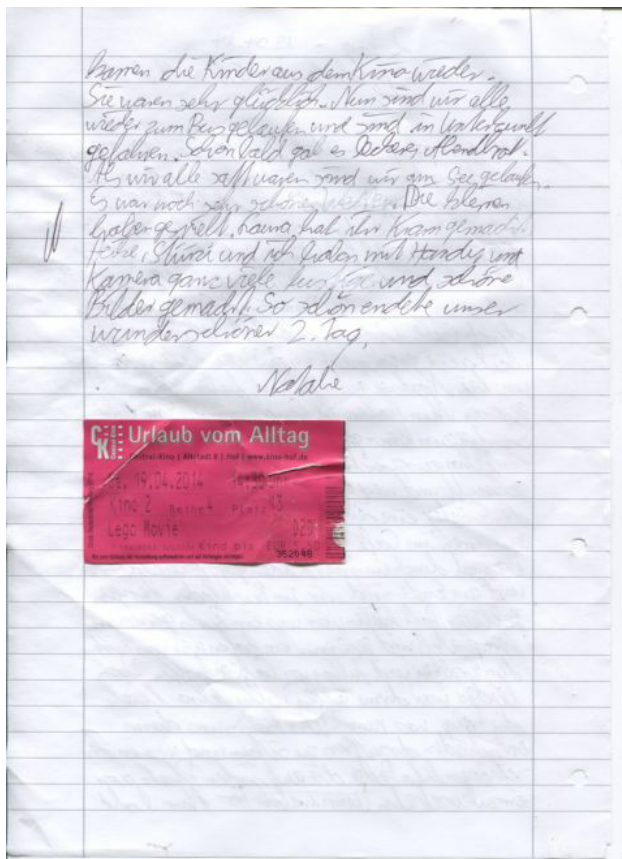 kamen die Kinder aus dem Kino wieder.
Sie waren sehr glücklich. Nun sind wir alle
wieder zum Bus gelaufen und sind in
gefahren. Schon bald gab es leckeres Abendbrot.
Als wir alle satt waren sind wir am See gelaufen.
Es war noch sehr schönes Wetter. Die kleinen
haben gespielt. Laura hat ihr Kram gemacht.
und ich haben mit Handy und
Kamera ganz viele lustige und schöne
Bilder gemacht. So schön endete unser
wunderschöner 2. Tag.
Natalie
CK Urlaub vom Alltag
Central-Kino | Altstadt 8 | Hof | www.kino-hof.de
Sa. 19.04.2014 14:30 Uhr
Kino 2 Reihe 4 Platz 13
Lego Movie
Kind bis
352048